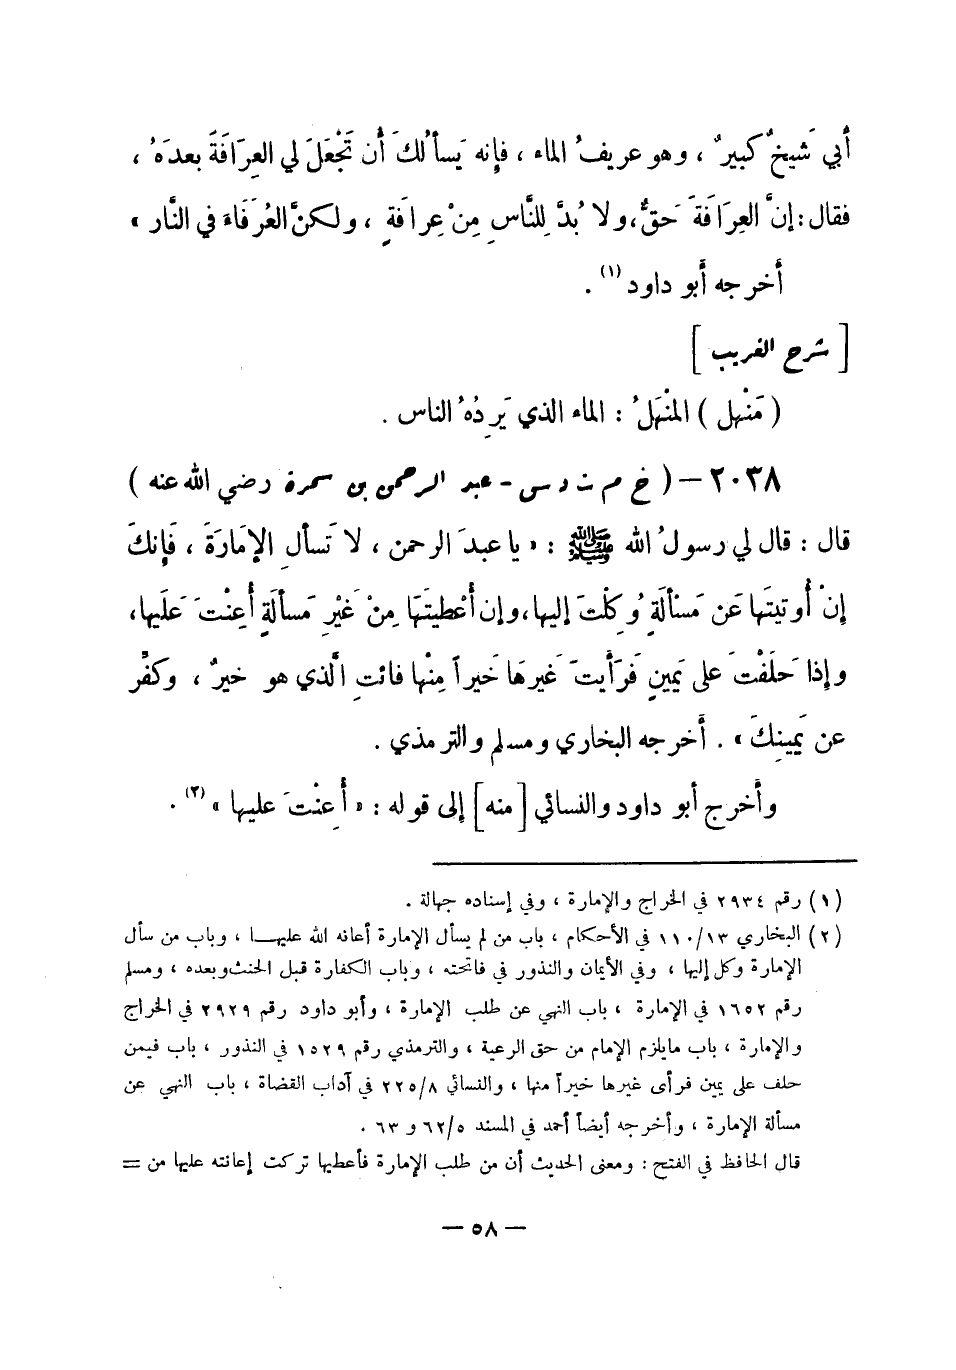 أَبي شيخٌ كبيرٌ ، وهو عريفُ الماء ، فإِنه يَسأَلُكَ أَن تَجْعَلَ لي العِرَافَةَ بعدَهُ ،
فقال : إنَّ العِرَافَةَ حَقٌّ ، ولا بُدَّ لِلنَّاسِ مِنْ عِرافَةٍ ، ولكنَّ العُرَفَاءَ في النَّار »
أَخرجه أَبو داود (١) .
[ شرح الغريب ]
( مَنْهل ) المَنْهَلُ : الماء الذي يَرِدُهُ الناس .
٢٠٣٨ – ( خ م ت د س - عبد الرحمن بن سمرة رضي الله عنه )
قال : قال لي رسولُ الله ﷺ : « يا عبدَ الرحمن ، لا تَسأَلِ الإِمَارَةَ ، فَإِنكَ
إنْ أُوتيتَها عَن مَسْأَلَةٍ وُكِلْتَ إليها ، وإن أُعْطِيتَهَا مِنْ غَيْرِ مَسأَلَةٍ أُعِنْتَ عَلَيها ،
وإِذا حَلَفْتَ على يَمِينٍ فَرَأَيتَ غيرهَا خَيراً مِنْها فائتِ الَّذي هو خيرٌ ، وكفِّر
عن يَمِينِكَ » . أَخرجه البخاري ومسلم والترمذي .
وأَخرج أَبو داود والنسائي [ منه ] إلى قوله : « أُعِنْتَ عليها » (٢) .
(١) رقم ٢٩٣٤ في الخراج والإمارة ، وفي إسناده جهالة .
(٢) البخاري ١١٠/١٣ في الأحكام ، باب من لم يسأل الإمارة أعانه الله عليهـا ، وباب من سأل
الإمارة وكل إليها ، وفي الأيمان والنذور في فاتحته ، وباب الكفارة قبل الحنث وبعده ، ومسلم
رقم ١٦٥٢ في الإمارة ، باب النهي عن طلب الإمارة ، وأبو داود رقم ٢٩٢٩ في الخراج
والإمارة ، باب مايلزم الإمام من حق الرعية ، والترمذي رقم ١٥٢٩ في النذور ، باب فيمن
حلف على يمين فرأى غيرها خيراً منها ، والنسائي ٢٢٥/٨ في آداب القضاة ، باب النهي عن
مسألة الإمارة ، وأخرجه أيضاً أحمد في المسند ٦٢/٥ و ٦٣ .
قال الحافظ في الفتح : ومعنى الحديث أن من طلب الإمارة فأعطيها تركت إعانته عليها من =
— ٥٨ —